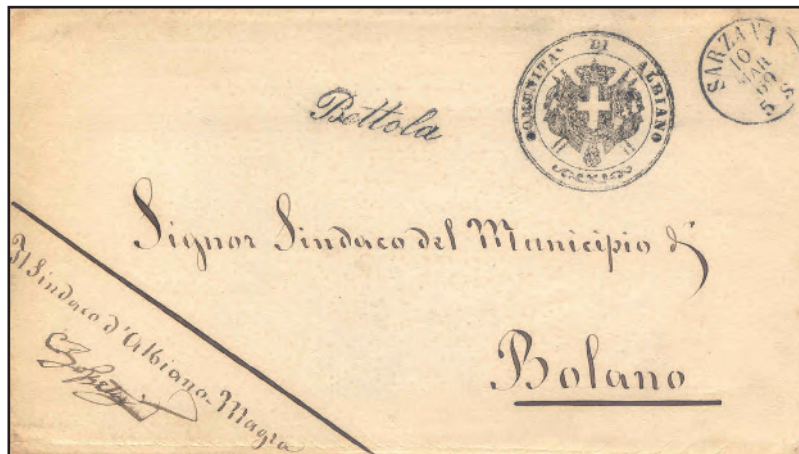 Bettola
COMUNITA' DI ALBIANO
SARZANA
10
MAR
69
5 S.
Signor Sindaco del Municipio di
Bolano
Il Sindaco d'Albiano-Magra